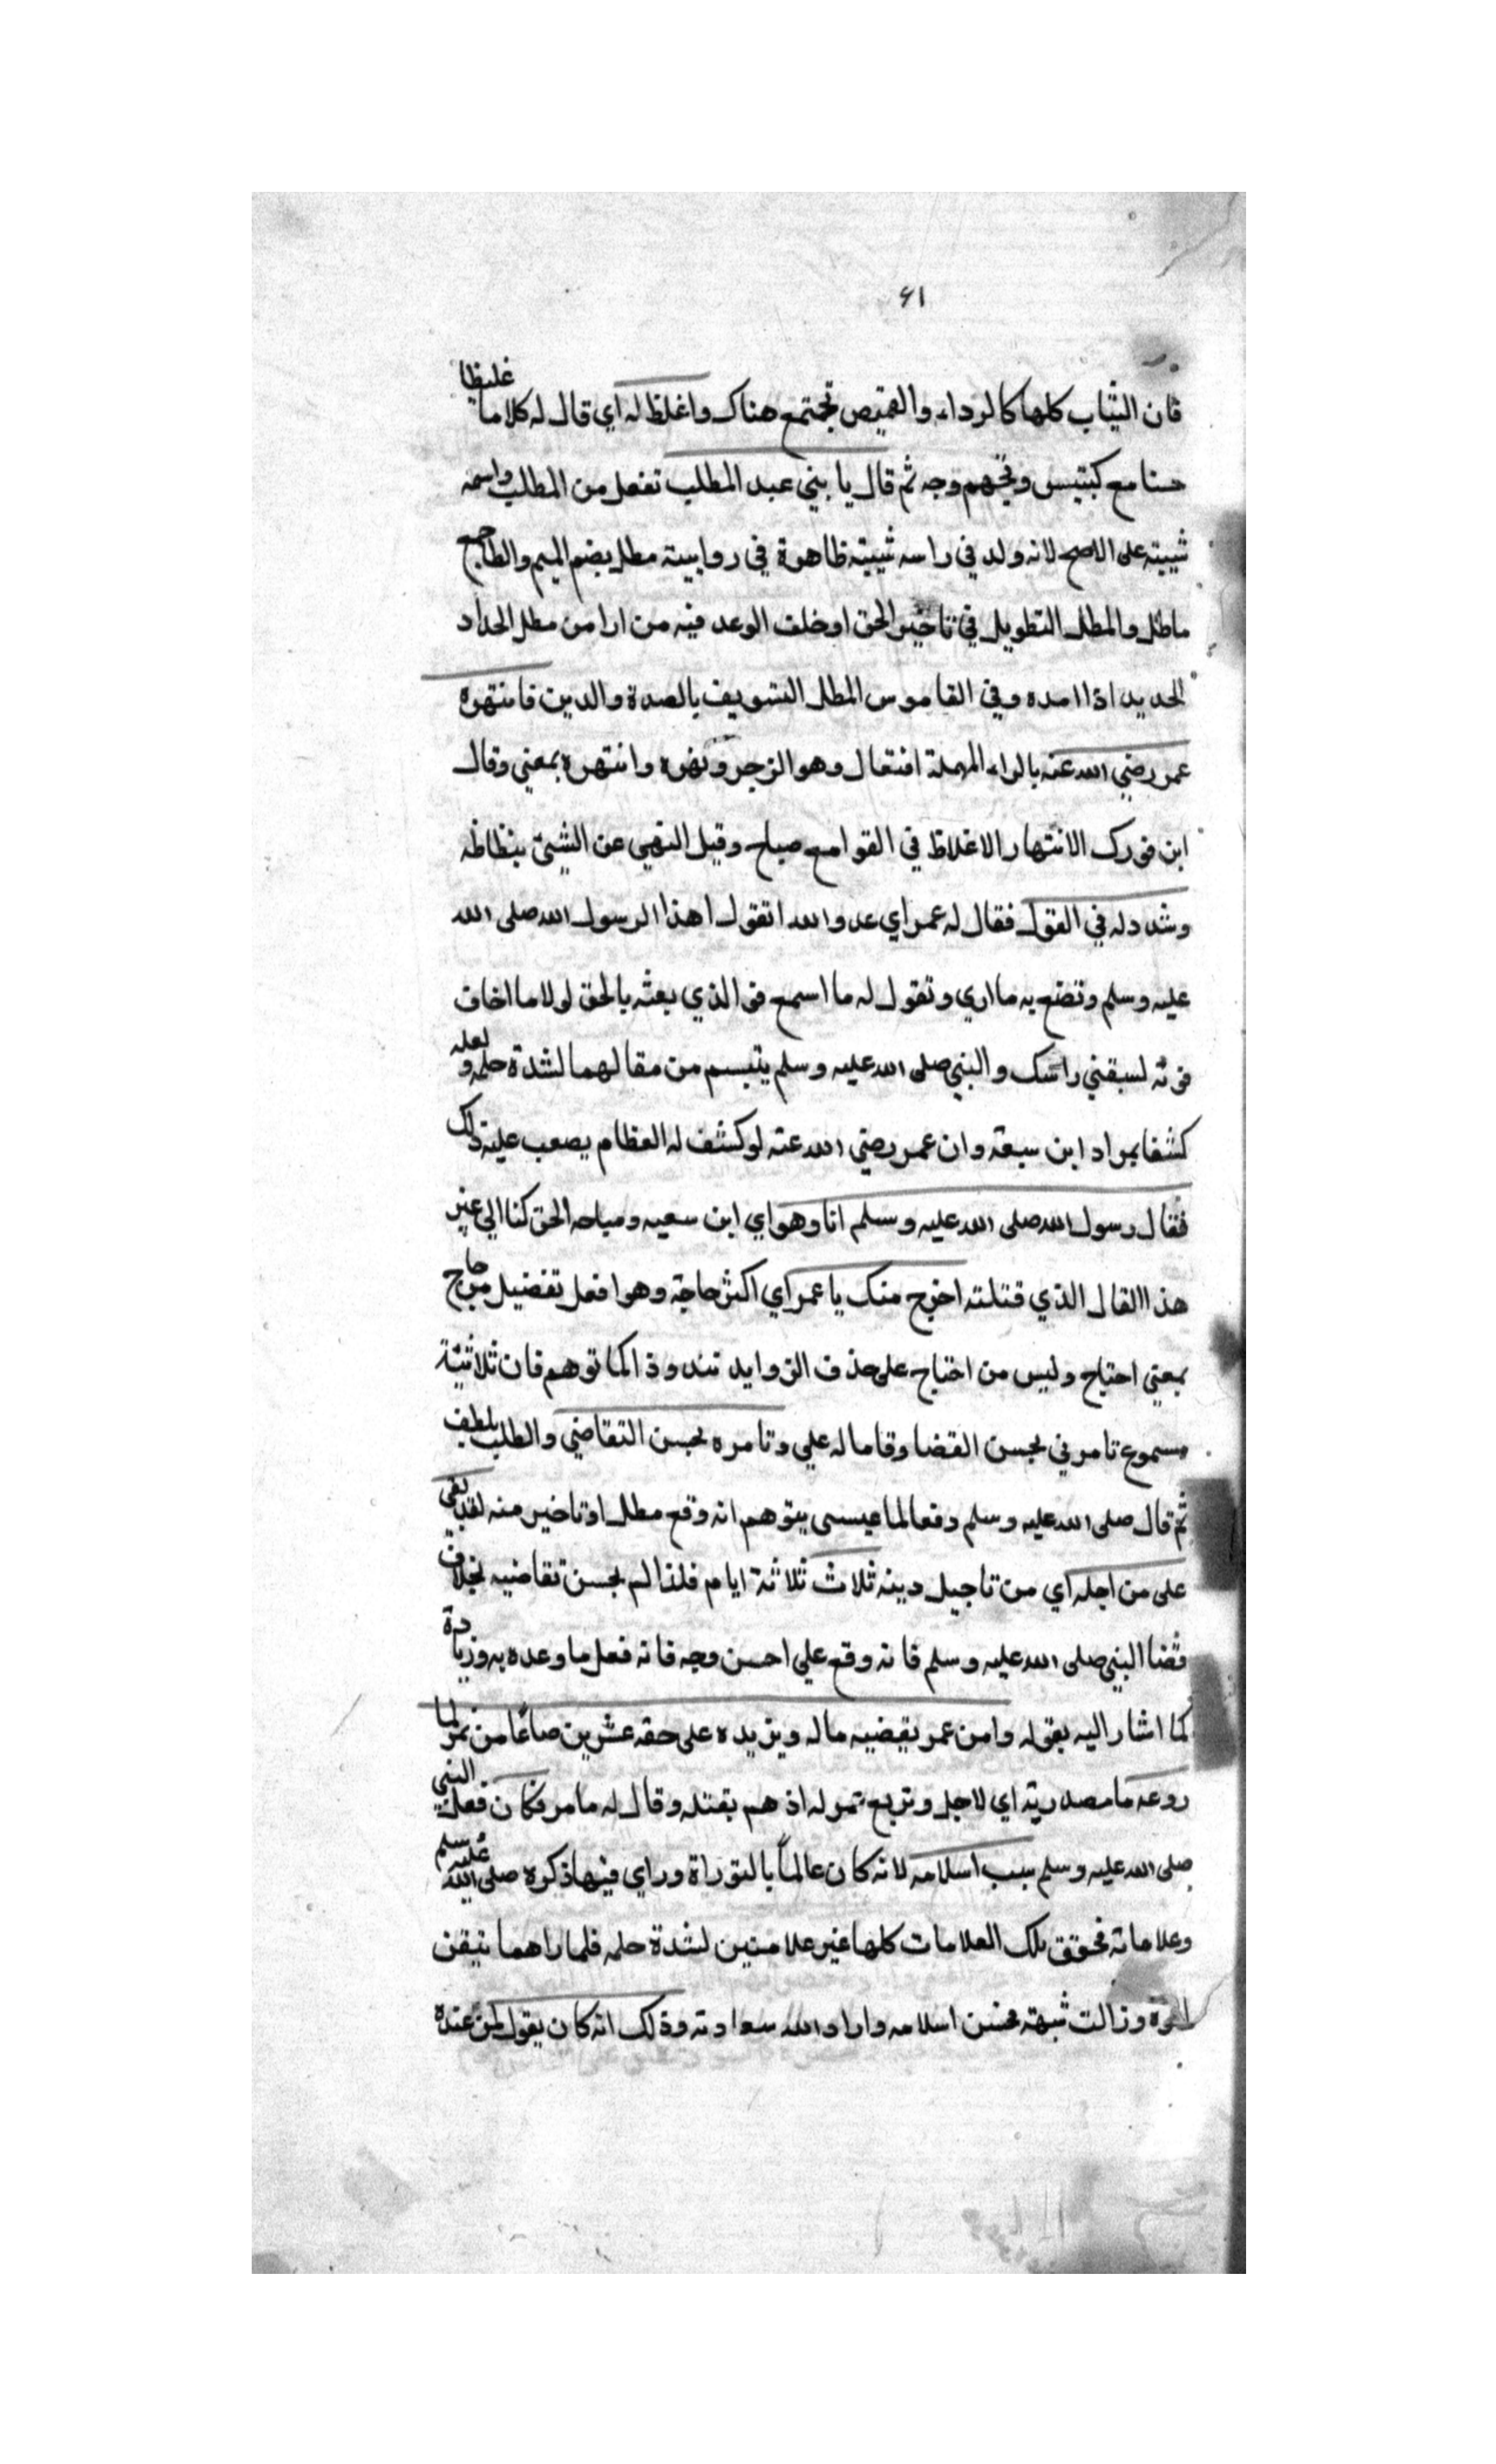 ٦١
فان الثياب كلها كالرداء والقميص تجتمع هناك واغلظ له اي قال له كلاما غليظا
حسنا مع كبتيس وتجهم وجه ثم قال يا بني عبد المطلب تفعل من المطلب واسمه
شيبته على الاصح لانه ولد في راسه شيبته ظاهرة في رواييته مطل بضم الميم والطا جمع
ماطل والمطل التطويل في تاخير الحق او خلف الوعد فيه من ارا من مطل الحداد
الحديد اذا امده وفي القاموس المطل التسويف بالعدة والدين فانتهره
عمر رضي الله عنه بالراء المهملة افتعال وهو الزجر ونهره وانتهره بمعني وقال
ابن فورك الانتهار الاغلاظ في القول مع صياح وقيل النهي عن الشيئ بنظاظه
وشدد له في القول فقال له عمر اي عدو الله اتقول هذا الرسول الله صلى الله
عليه وسلم وتضع به ما اري وتقول له ما اسمع فو الذي بعثه بالحق لولا ما اخاف
فوته لسبقني راسك والنبي صلى الله عليه وسلم يتبسم من مقالهما لشدة حلمه و لعله
كشفا بمراد ابن سبعة وان عمر رضي الله عنه لو كشف له العظام يصعب عليه ذلك
فقال رسول الله صلى الله عليه وسلم انا وهو اي ابن سعيه ومباحه الحق كنا الي غير
هذا القال الذي قتلته احوج منك يا عمر اي اكثر حاجة وهو افعل تفضيل من حاج
بمعني احتاج وليس من احتاج على حذف الزوايد تندوذا كما توهم فان ثلاثيته
مسموع تامرني بحسن القضا وقاماله علي وتامره بحسن التقاضي والطلب بلطف
ثم قال صلى الله عليه وسلم دفعا لما عيسى يتوهم انه وقع مطل او تاخير منه لقد بقي
على من اجله اي من تاجيل دينه ثلاث ثلاثة ايام فلذا لم بحسن تقاضيه بخلاف
قضا النبي صلى الله عليه وسلم فانه وقع علي احسن وجه فانه فعل ما وعده به وزيادة
كما اشار اليه بقوله وامن عمر يقضيه ماله ويزيده على حقه عشرين صاعا من تمر لما
روعه ما مصدريته اي لاجل وتربع تمر له اذ هم بقتله وقال له ما مر فكان فعل النبي
صلى الله عليه وسلم سبب اسلامه لانه كان عالماً بالتوراة وراي فيها ذكره صلى الله عليه سلم
وعلاماته فحقق تلك العلامات كلها غير علامتين لشدة حلمه فلما راهما تيقن
وزالت شبهته فحسن اسلامه واراد الله سعادته وذلك انه كان يقول لمن عنده